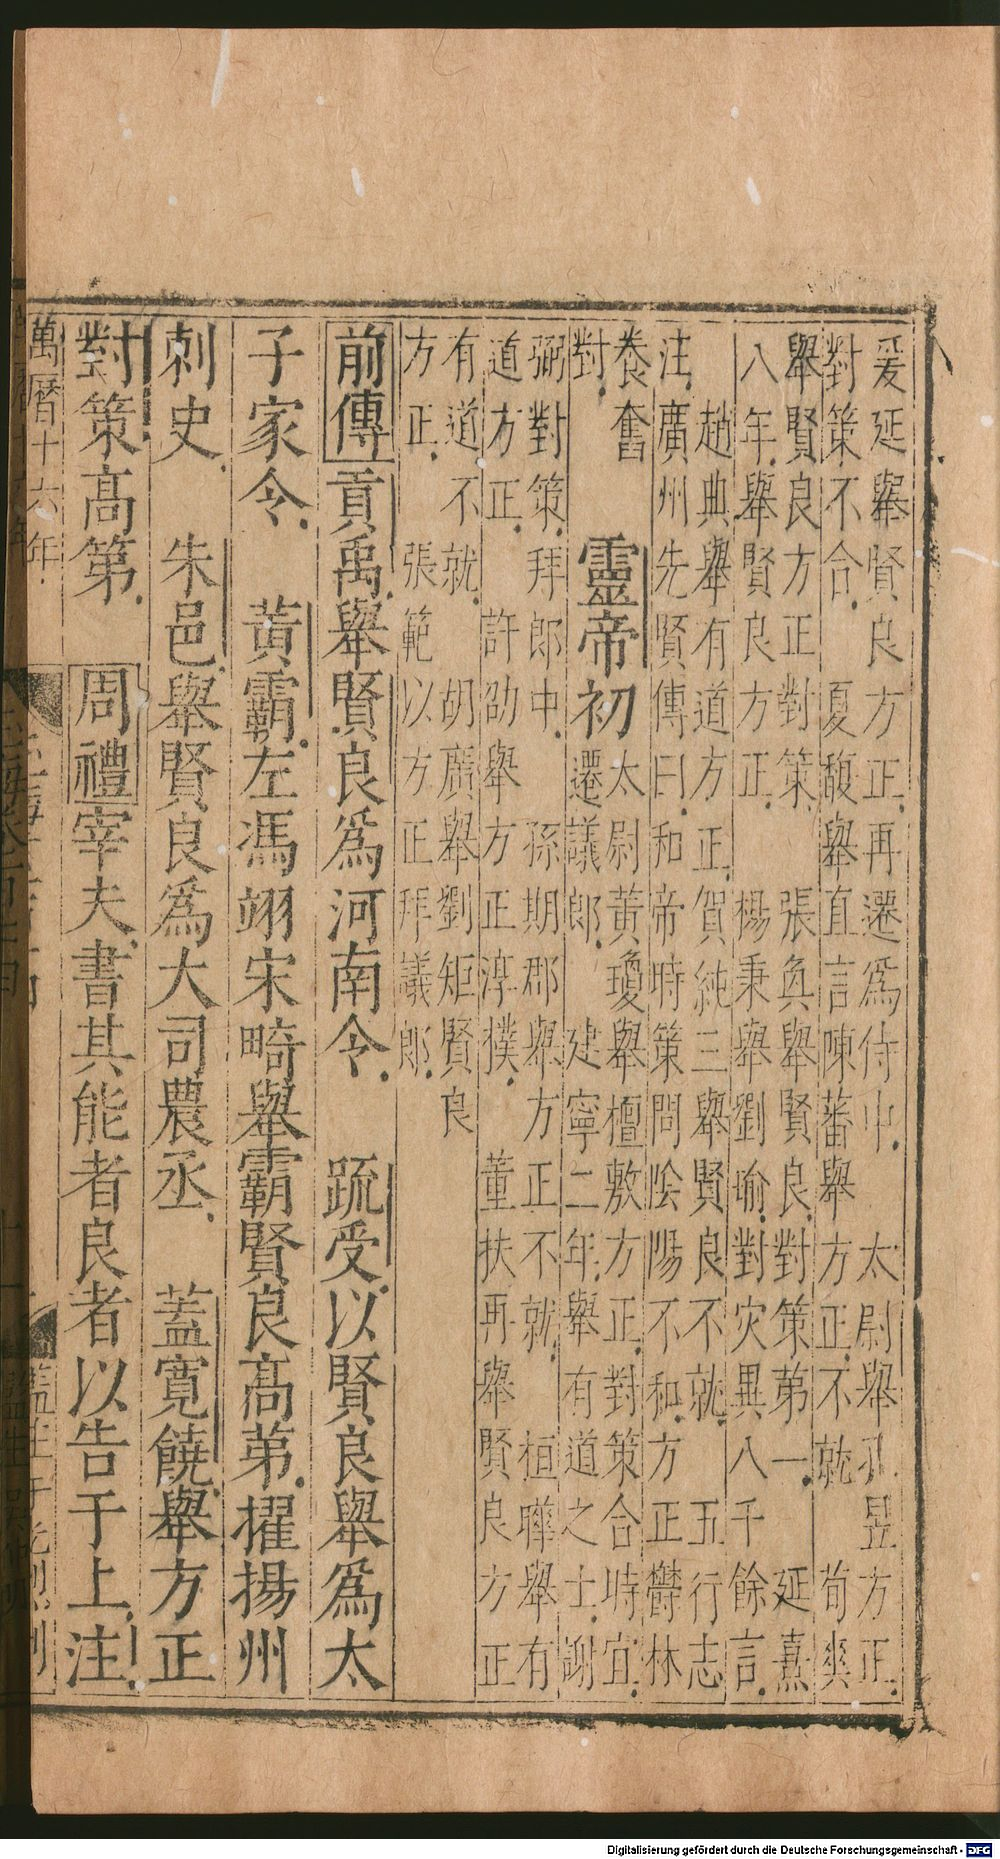 爰延舉賢良方正再遷爲侍中　太尉舉孔昱方正
對策不合　夏馥舉直言陳蕃舉方正不就　荀爽
舉賢良方正對策　張奐舉賢良對策第一　延熹
八年舉賢良方正　楊秉舉劉瑜對灾異八千餘言
趙典舉有道方正賀純三舉賢良不就　五行志
注廣州先賢傳曰和帝時策問陰陽不和方正欝林
養奮
對
靈帝初
太尉黃瓊舉檀敷方正對策合時宜
遷議郎　建寧二年舉有道之士謝
弼對策拜郎中　孫期郡舉方正不就　桓曄舉有
道方正　許劭舉方正淳樸　董扶再舉賢良方正
有道不就　胡廣舉劉矩賢良
方正　張範以方正拜議郎
前傳貢禹舉賢良爲河南令　疏受以賢良舉爲太
子家令　黃霸左馮翊宋畸舉霸賢良高第擢揚州
刺史　朱邑舉賢良爲大司農丞　蓋寬饒舉方正
對策高第　周禮宰夫書其能者良者以告于上注
萬曆十六年
Digitalisierung gefördert durch die Deutsche Forschungsgemeinschaft - DFG